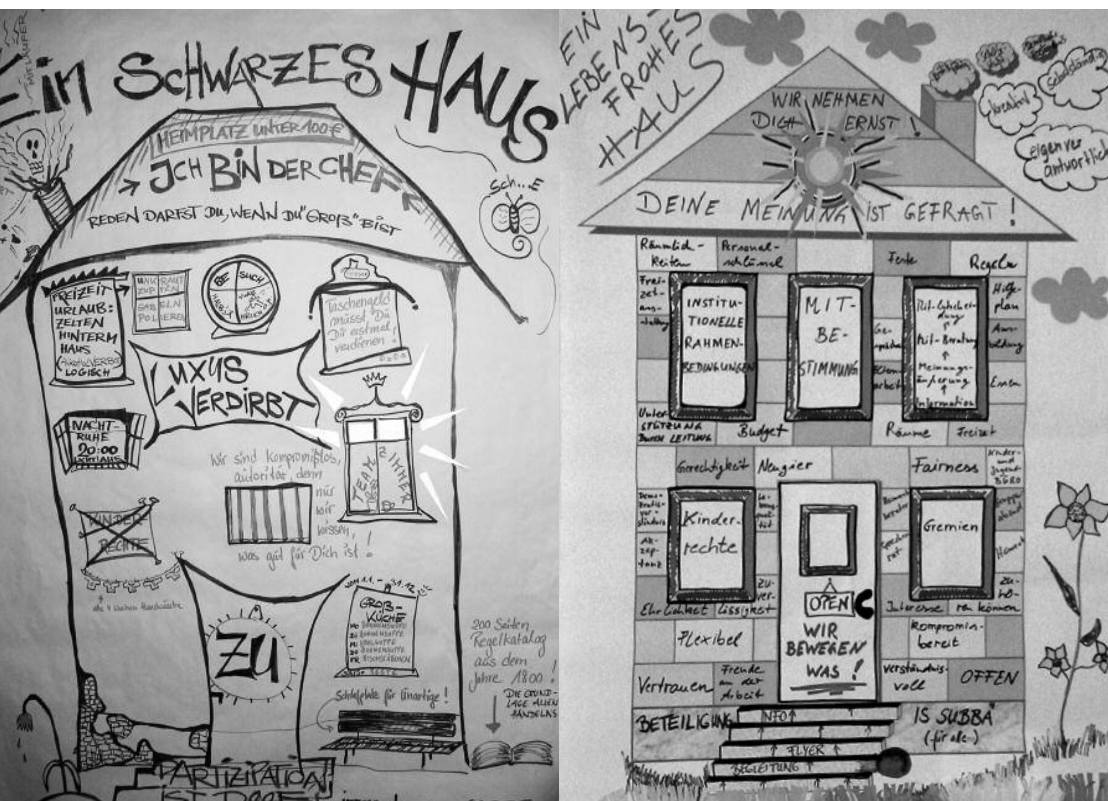 MITLÄUFER
Ein SCHWARZES HAUS
HEIMPLATZ UNTER 100€
→ ICH BIN DER CHEF
REDEN DARFST DU, WENN DU "GROß" BIST
Sch...E
FREIZEIT
URLAUB:
ZELTEN
HINTERM
HAUS
LOGISCH
UNKRAUT
ZUPFEN
GABELN
POLIEREN
BE SUCH
Taschengeld
müsst Du
Dir erstmal
verdienen!
LUXUS
VERDIRBT
NACHT-
RUHE
20:00
TEAM
IMMER
Wir sind kompromißlos,
autoritär, denn
nur
wir
wissen,
was gut für Dich ist!
KINDER
RECHTE
VOM 1.1. - 31.12.
GROß-
KÜCHE
ZU
200 Seiten
Regelkatalog
aus dem
Jahre 1800!
DIE GRUND-
LAGE ALLEN
HANDELNS
Schlafplätze für Unartige!
PARTIZIPATION
IST DOOF
EIN
LEBENS-
FROHES
HAUS
WIR NEHMEN
DICH ERNST!
DEINE MEINUNG IST GEFRAGT!
kreativ
Selbständig
eigenver
antwortlich
Räumlich-
keiten
Personal-
schlüssel
Feste
Regeln
Frei-
zeit
INSTITU-
TIONELLE
RAHMEN-
BEDINGUNGEN
MIT-
BE-
STIMMUNG
Mit-Entschei-
dung
↑
Mit-Beratung
↑
Meinungs-
äußerung
↑
Information
Hilfe-
plan
Aus-
bildung
Essen
Ge-
spräche
Eltern-
arbeit
Unter-
STÜTZUNG
DURCH LEITUNG
Budget
Räume
Freizeit
Gerechtigkeit
Neugier
Fairness
Kinder-
und
Jugend-
BÜRO
Demo-
kratie-
ver-
ständnis
Ak-
zep-
tanz
Kinder-
rechte
Le-
bens-
quali-
tät
Zu-
ver-
lässigkeit
Ehrlichkeit
Gremien
Interesse
Zu-
hö-
ren können
OPEN
WIR
BEWEGEN
WAS!
Flexibel
Kompromiss-
bereit
Vertrauen
Freude
an der
Arbeit
Verständnis-
voll
OFFEN
BETEILIGUNG
IS SUBBA
(für alle)
INFO
FLYER
BEGLEITUNG